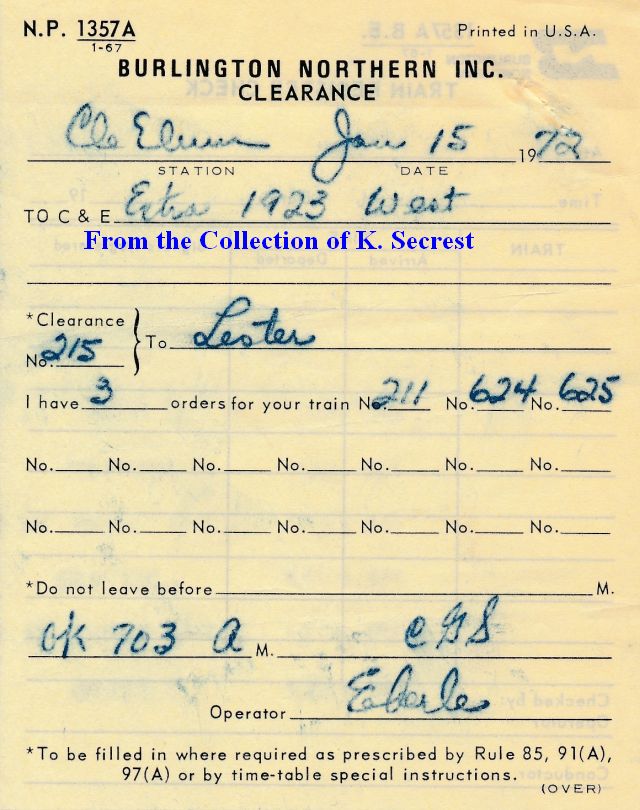 N.P. 1357A Printed in U.S.A.
1-67
BURLINGTON NORTHERN INC.
CLEARANCE
Cle Elum Jan 15 1972
STATION DATE
TO C & E Extra 1923 West
From the Collection of K. Secrest
*Clearance
No. 215 } To Lester
I have 3 orders for your train No. 211 No. 624 No. 625
No. No. No. No. No. No. No.
No. No. No. No. No. No. No.
*Do not leave before M.
OK 703 A M. CGS
Operator Eberle
*To be filled in where required as prescribed by Rule 85, 91(A),
97(A) or by time-table special instructions.
(OVER)